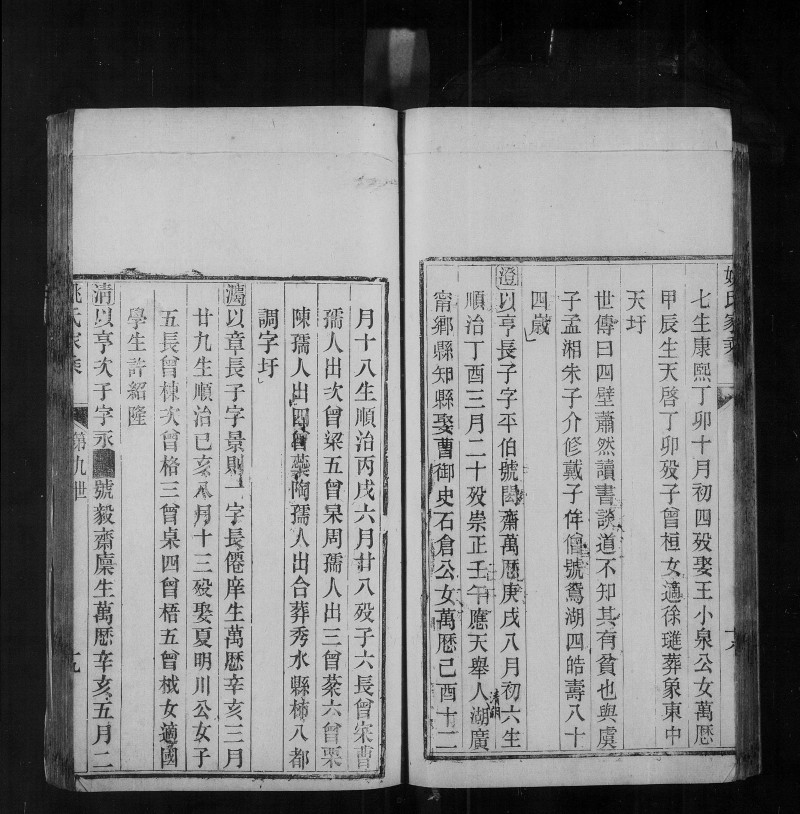 七生康熙丁卯十月初四歿娶王小泉公女萬歷
甲辰生天啓丁卯歿子曾桓女適徐璡葬象東中
天圩
世傳曰四壁蕭然讀書談道不知其有貧也與虞
子孟湘朱子介修戴子侔僧號鴛湖四皓壽八十
四歲
澄以亨長子字平伯號閎齋萬歷庚戌八月初六生
順治丁酉三月二十歿崇正壬午應天舉人湖廣
甯鄉縣知縣娶曹御史石倉公女萬歷己酉十二
清湖
月十八生順治丙戌六月廿八歿子六長曾寀曹
孺人出次曾梁五曾杲周孺人出三曾蔡六曾栗
陳孺人出四曾蘗陶孺人出合葬秀水縣柿八都
調字圩
鴻以章長子字景則一字長僊庠生萬歷辛亥三月
廿九生順治己亥八月十三歿娶夏明川公女子
五長曾棟次曾格三曾桌四曾梧五曾棫女適國
學生許紹隆
清以亨次子字永 號毅齋廩生萬歷辛亥五月二
姚氏家乘 第九世 十九